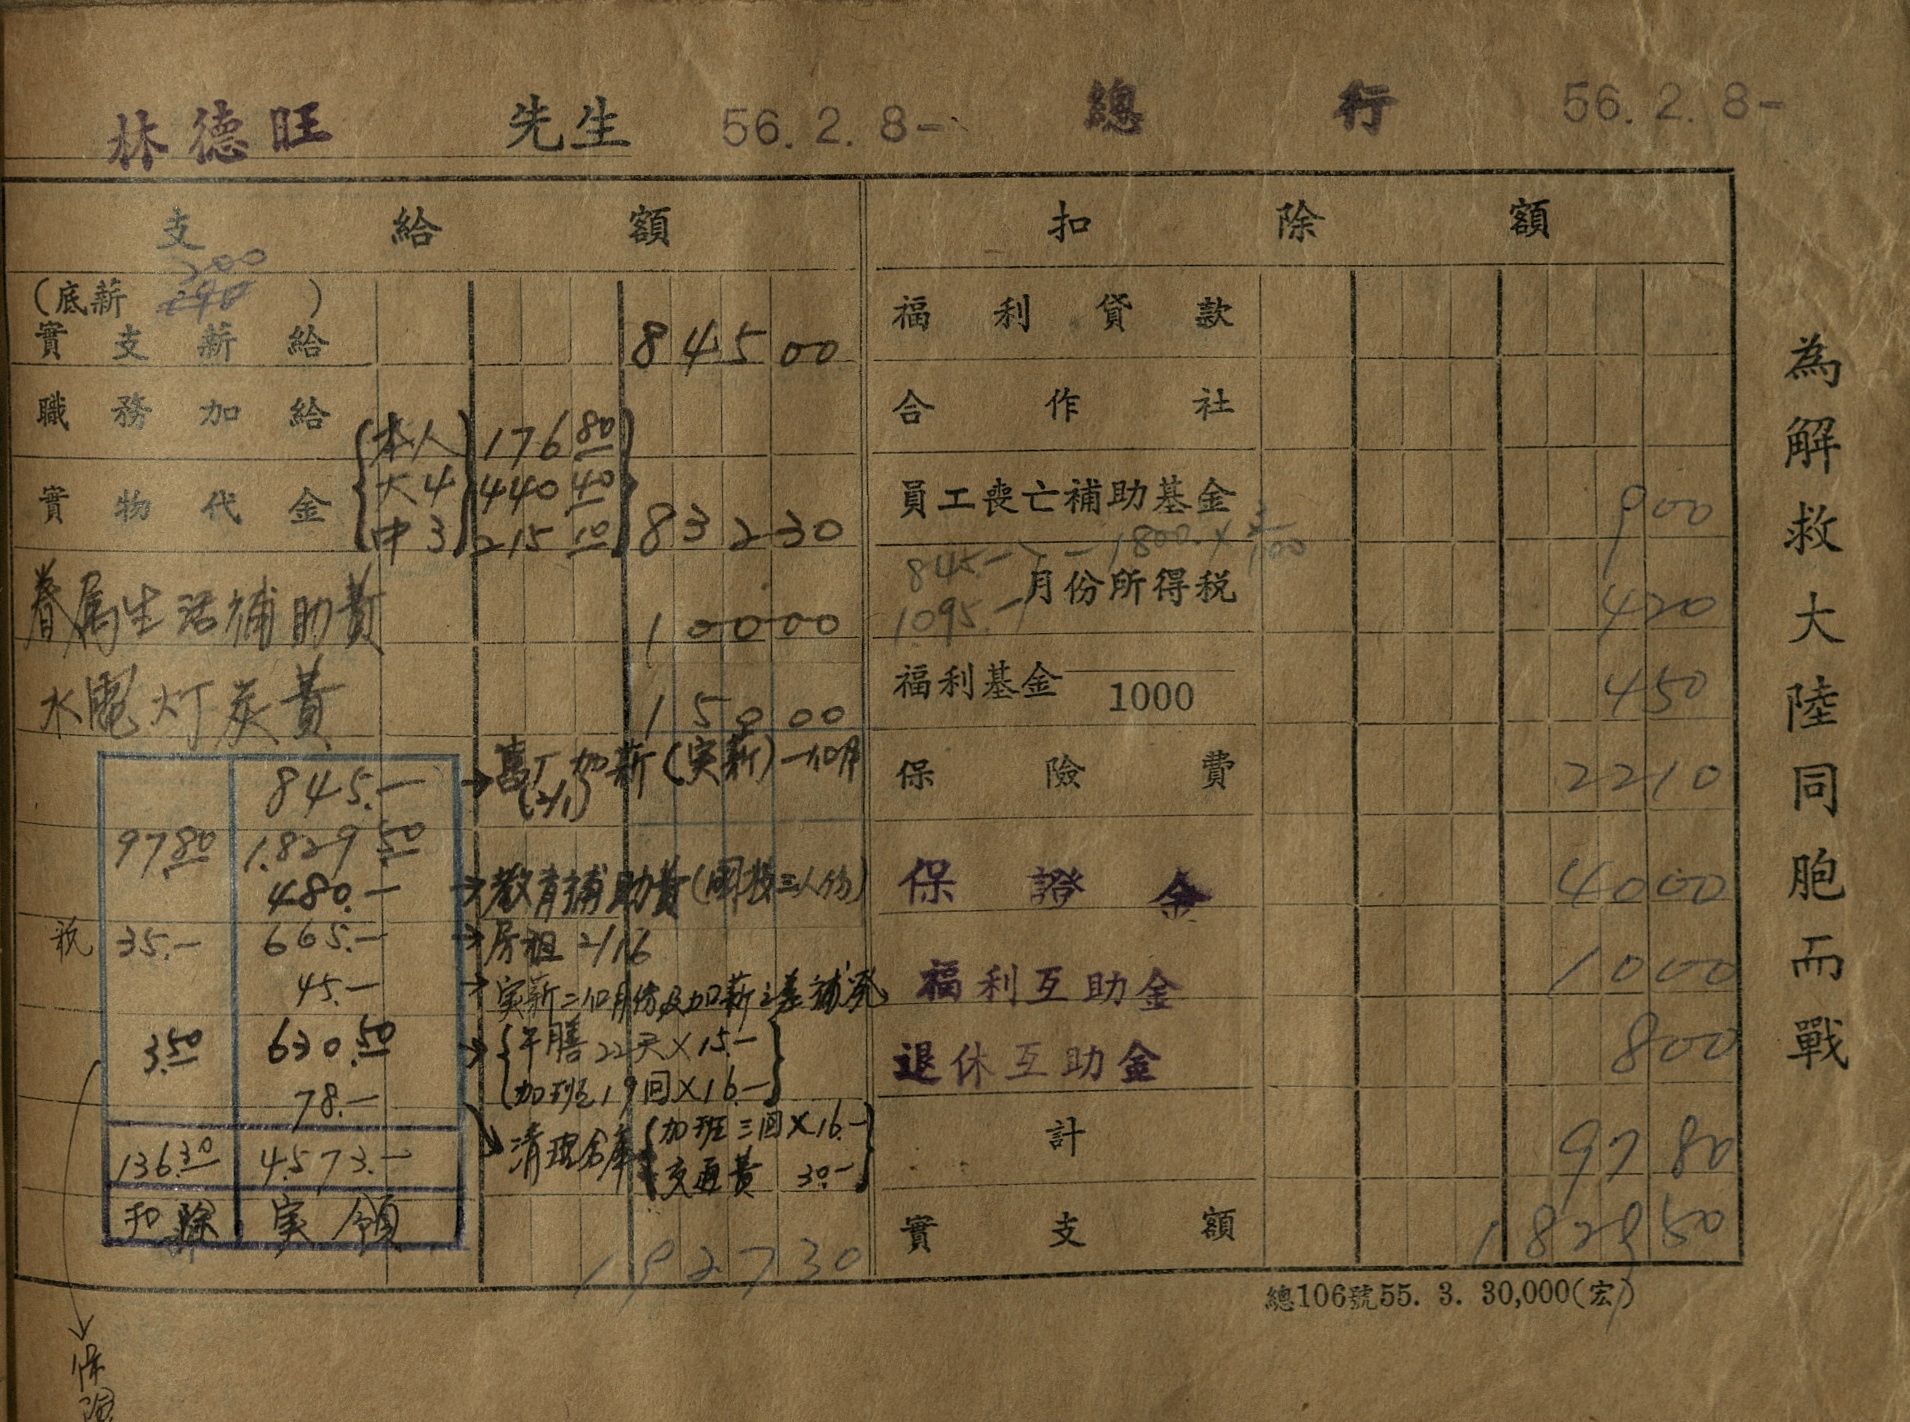 林德旺 先生 56.2.8- 總行 56.2.8-
支給額
(底薪 200 )
實支薪給 845 00
職務加給
實物代金 {本人 大4 中3} {176 80 440 40 215 10} 832 30
眷属生活補助費 100 00
水電灯炭費 150 00
845.- → 旧 加薪(実薪)一個月
(2/1)
97 80 1.829 50
480.- → 教育補助費(國校三人份)
税 35.- 665.- → 房租 2/16
45.- → 実薪二個月份及加薪之差補発
3.50 630.50 → {午膳22天×15.-
加班19回×16.-}
78.- → 清理倉庫 {加班三回×16.-
交通費 30.-}
136.30 4.573.-
扣除 実領
1927 30
保險
扣除額
福利貸款
合作社
員工喪亡補助基金 9 00
845.- 1800.× 3/100
1.095.-
月份所得稅 4 20
福利基金 ——1000 4 50
保險費 22 10
保證金 40 00
福利互助金 10 00
退休互助金 8 00
計 97 80
實支額 1829 50
總106號55. 3. 30,000(宏)
為解救大陸同胞而戰